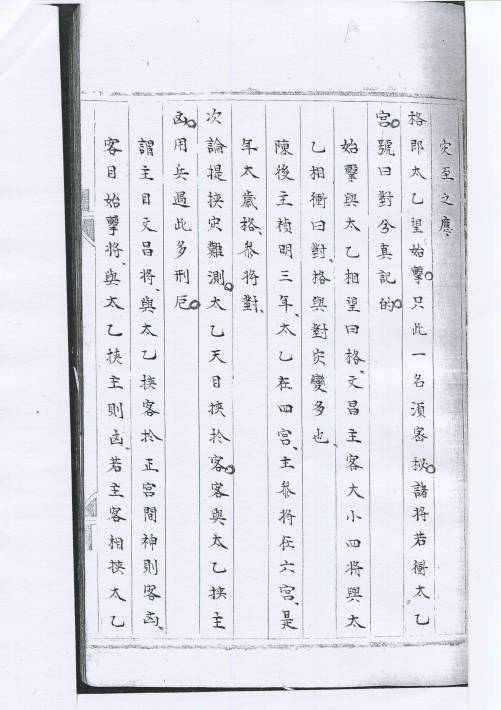 灾至之應
格即太乙望始擊只此一名須客秘諸將若衝太乙
宮號曰對兮真記的
始擊與太乙相望曰格、文昌主客大小四將與太
乙相衝曰對、格與對灾變多也、
陳後主禎明三年、太乙在四宮、主參將在六宮、是
年太歲格、參將對、
次論提挾灾難測太乙天目挾於客客與太乙挾主
凾用兵遇此多刑厄
謂主目文昌將、與太乙挾客於正宮間神則客凾、
客目始擊將、與太乙挾主則凾、若主客相挾太乙